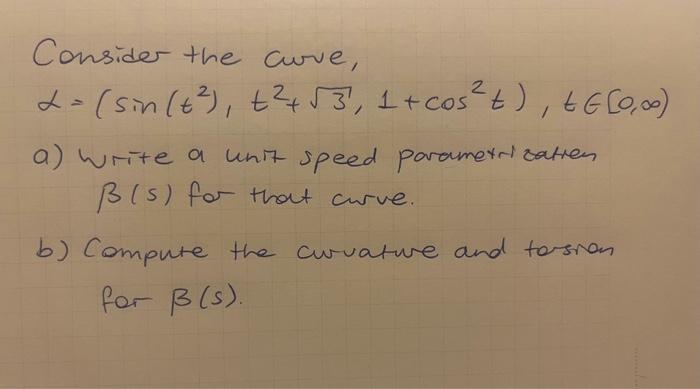 Consider the curve,
α = (sin(t²), t²+√3, 1+cos²t), t∈[0,∞)
a) Write a unit speed parametrization
β(s) for that curve.
b) Compute the curvature and torsion
for β(s).